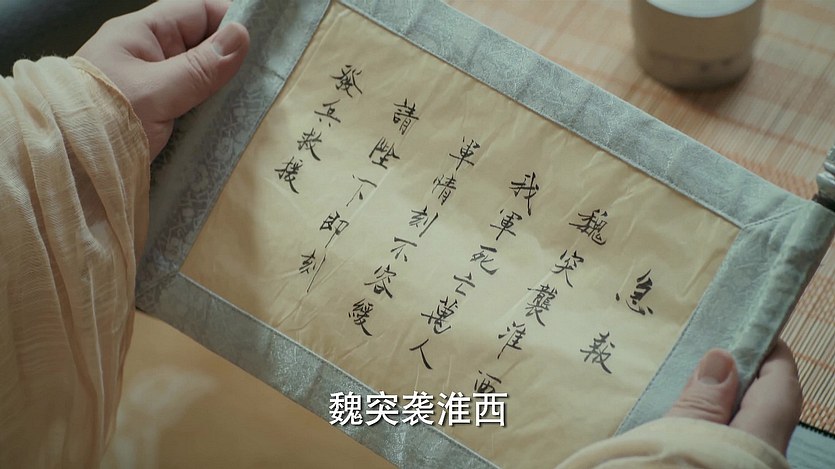 急報
魏突襲淮西
我軍死亡萬人
軍情刻不容緩
請陛下即刻
發兵救援
魏突袭淮西